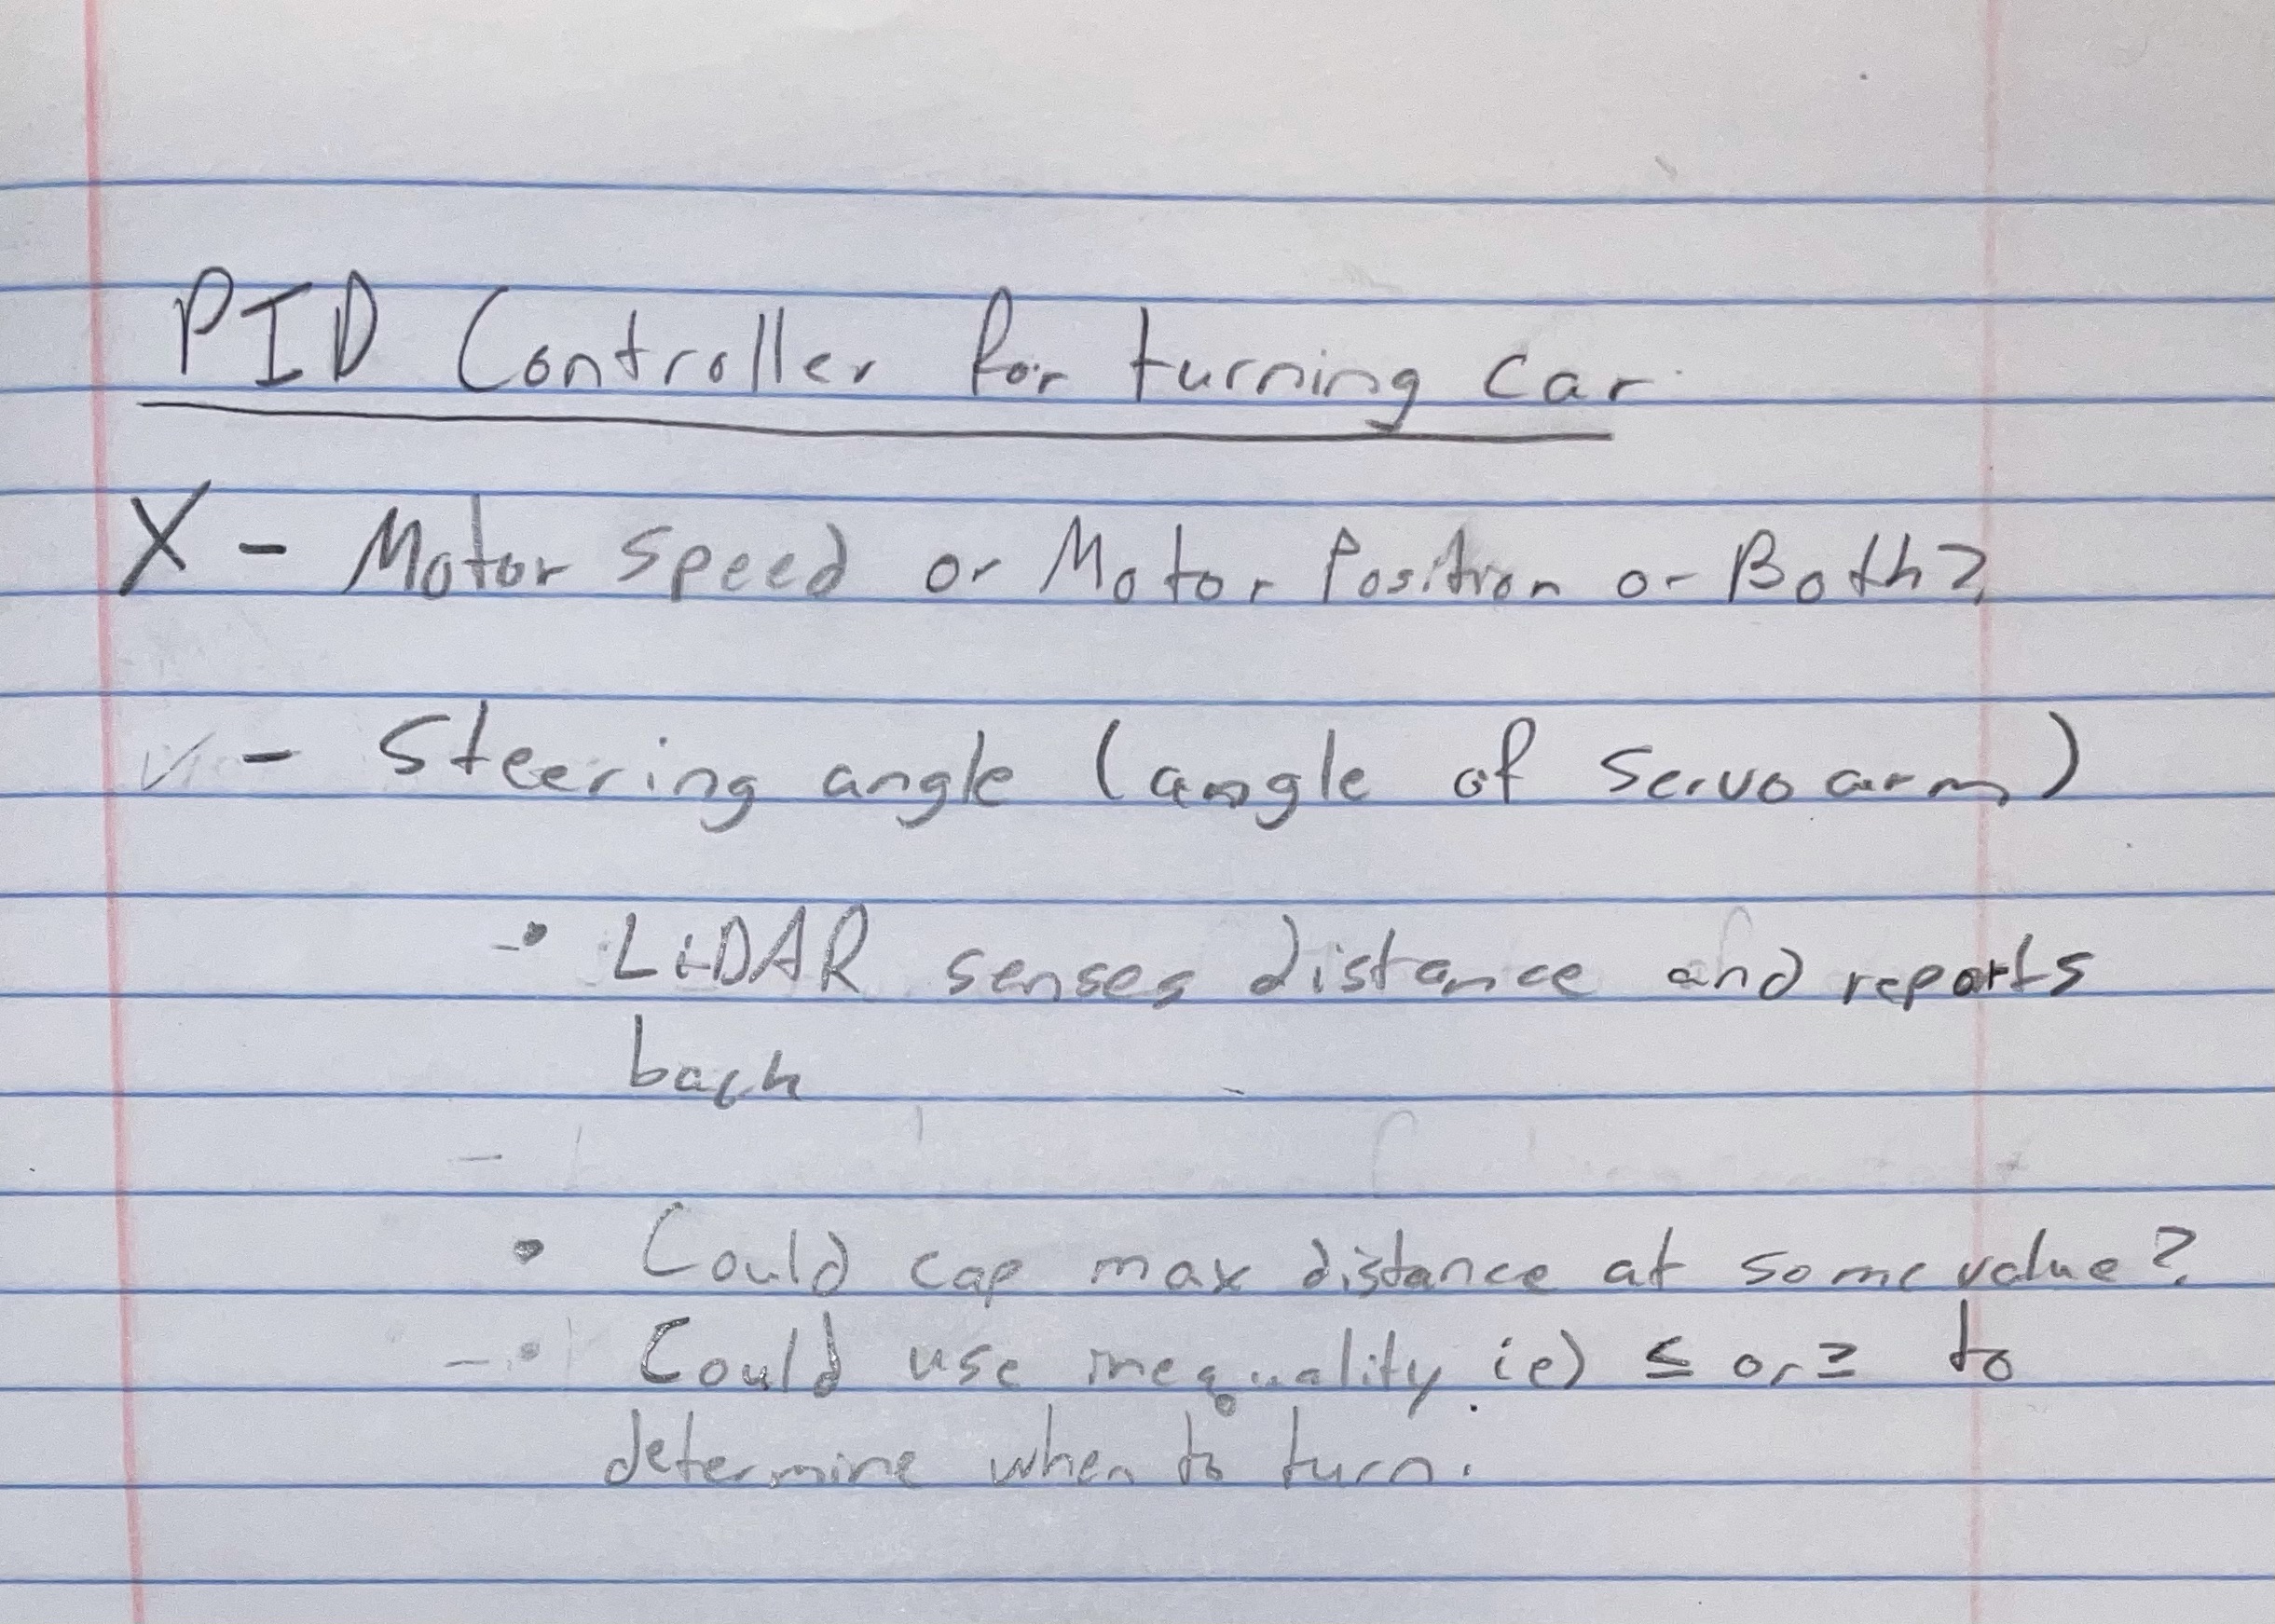 PID Controller for turning car
X - Motor Speed or Motor Position or Both?
✓ - Steering angle (angle of servo arm)
• LiDAR senses distance and reports
back
• Could cap max distance at some value?
• Could use inequality ie) ≤ or ≥ to
determine when to turn.